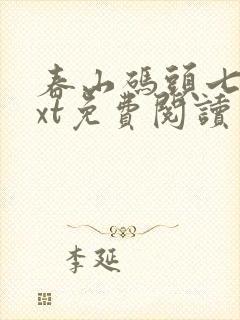 春山碼頭七
xt免費閱讀
李延